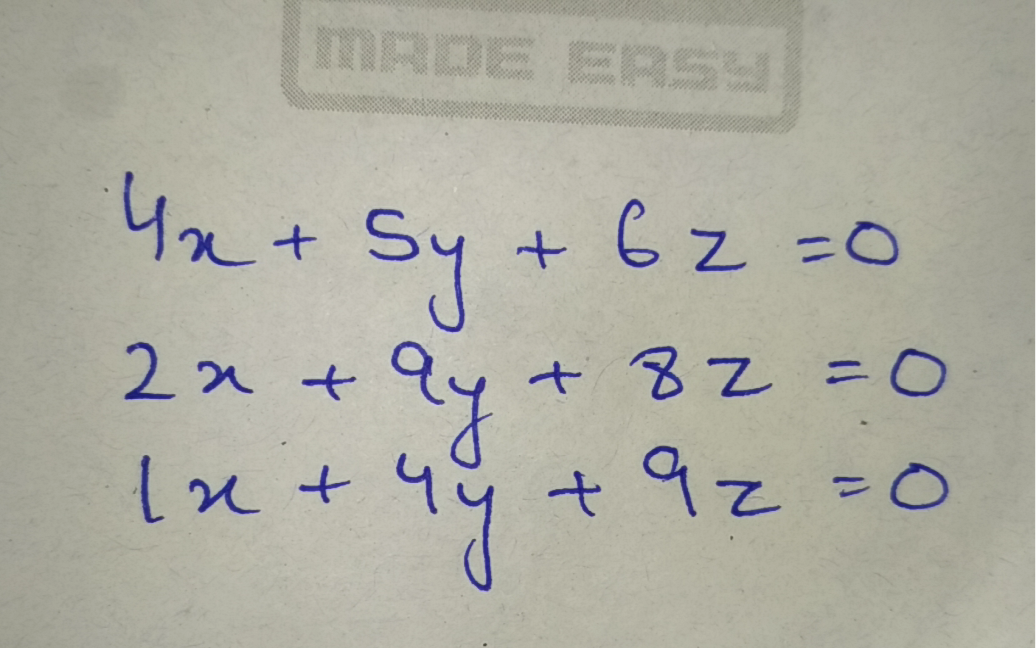 MADE EASY
4x + 5y + 6z = 0
2x + 9y + 8z = 0
1x + 4y + 9z = 0